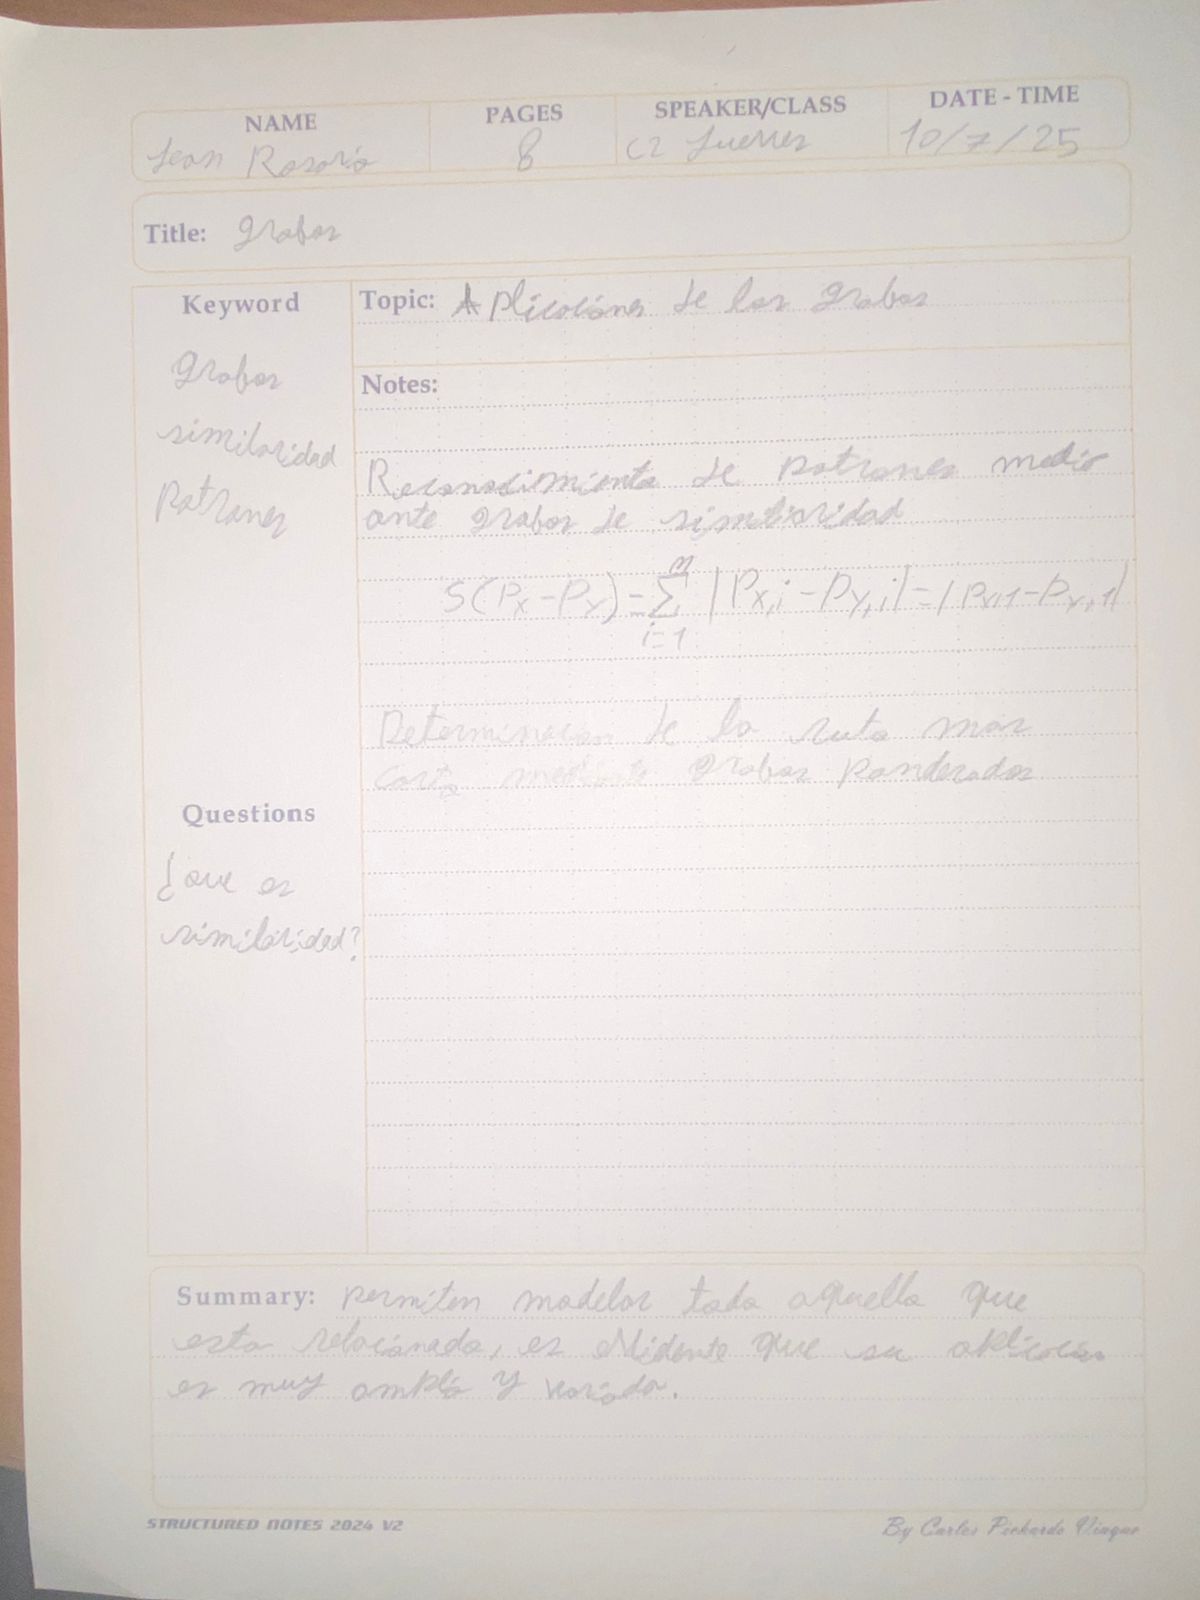 NAME
PAGES
SPEAKER/CLASS
DATE - TIME
Jean Rosario
8
C2
10/7/25
Title: grafos
Keyword
grafos
similaridad
Patrones
Topic: Aplicaciones de los grafos
Notes:
Reconocimiento de patrones medi
ante grafos de similaridad
S(Px-Py)=∑ |Px,i-Py,i|=|Px,1-Py,1|
n
i=1
Determinación de la ruta mas
corta mediante grafos ponderados
Questions
¿que es
similaridad?
Summary: permiten modelar todo aquello que
esta relacionado, es evidente que su aplicación
es muy amplia y variada.
STRUCTURED NOTES 2024 V2
By Carlos Pichardo Viuque